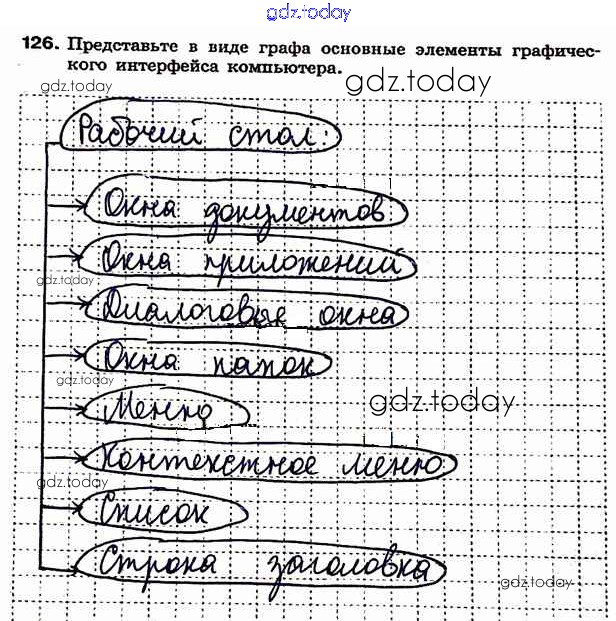 gdz.today
126. Представьте в виде графа основные элементы графичес-
кого интерфейса компьютера.
gdz.today
Рабочий стол:
Окна документов
Окна приложений
gdz.today
Диалоговые окна
Окна папок
gdz.today
Меню
gdz.today
Контекстное меню
gdz.today
Список
Строка заголовка
gdz.today